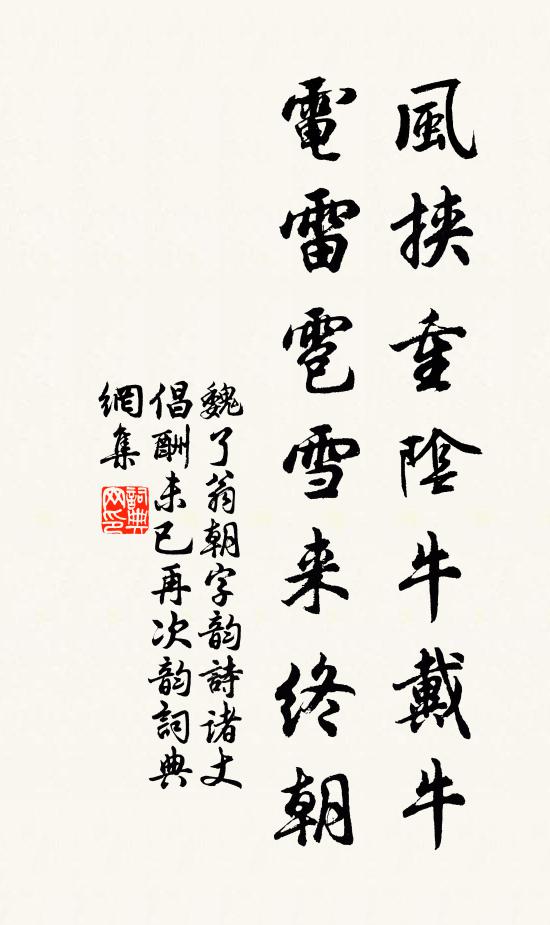 風挾重陰牛戴牛
電雷雹雪来終朝
魏了翁朝字韵詩诸丈
倡酬未已再次韵詞典
網集
詞典网印